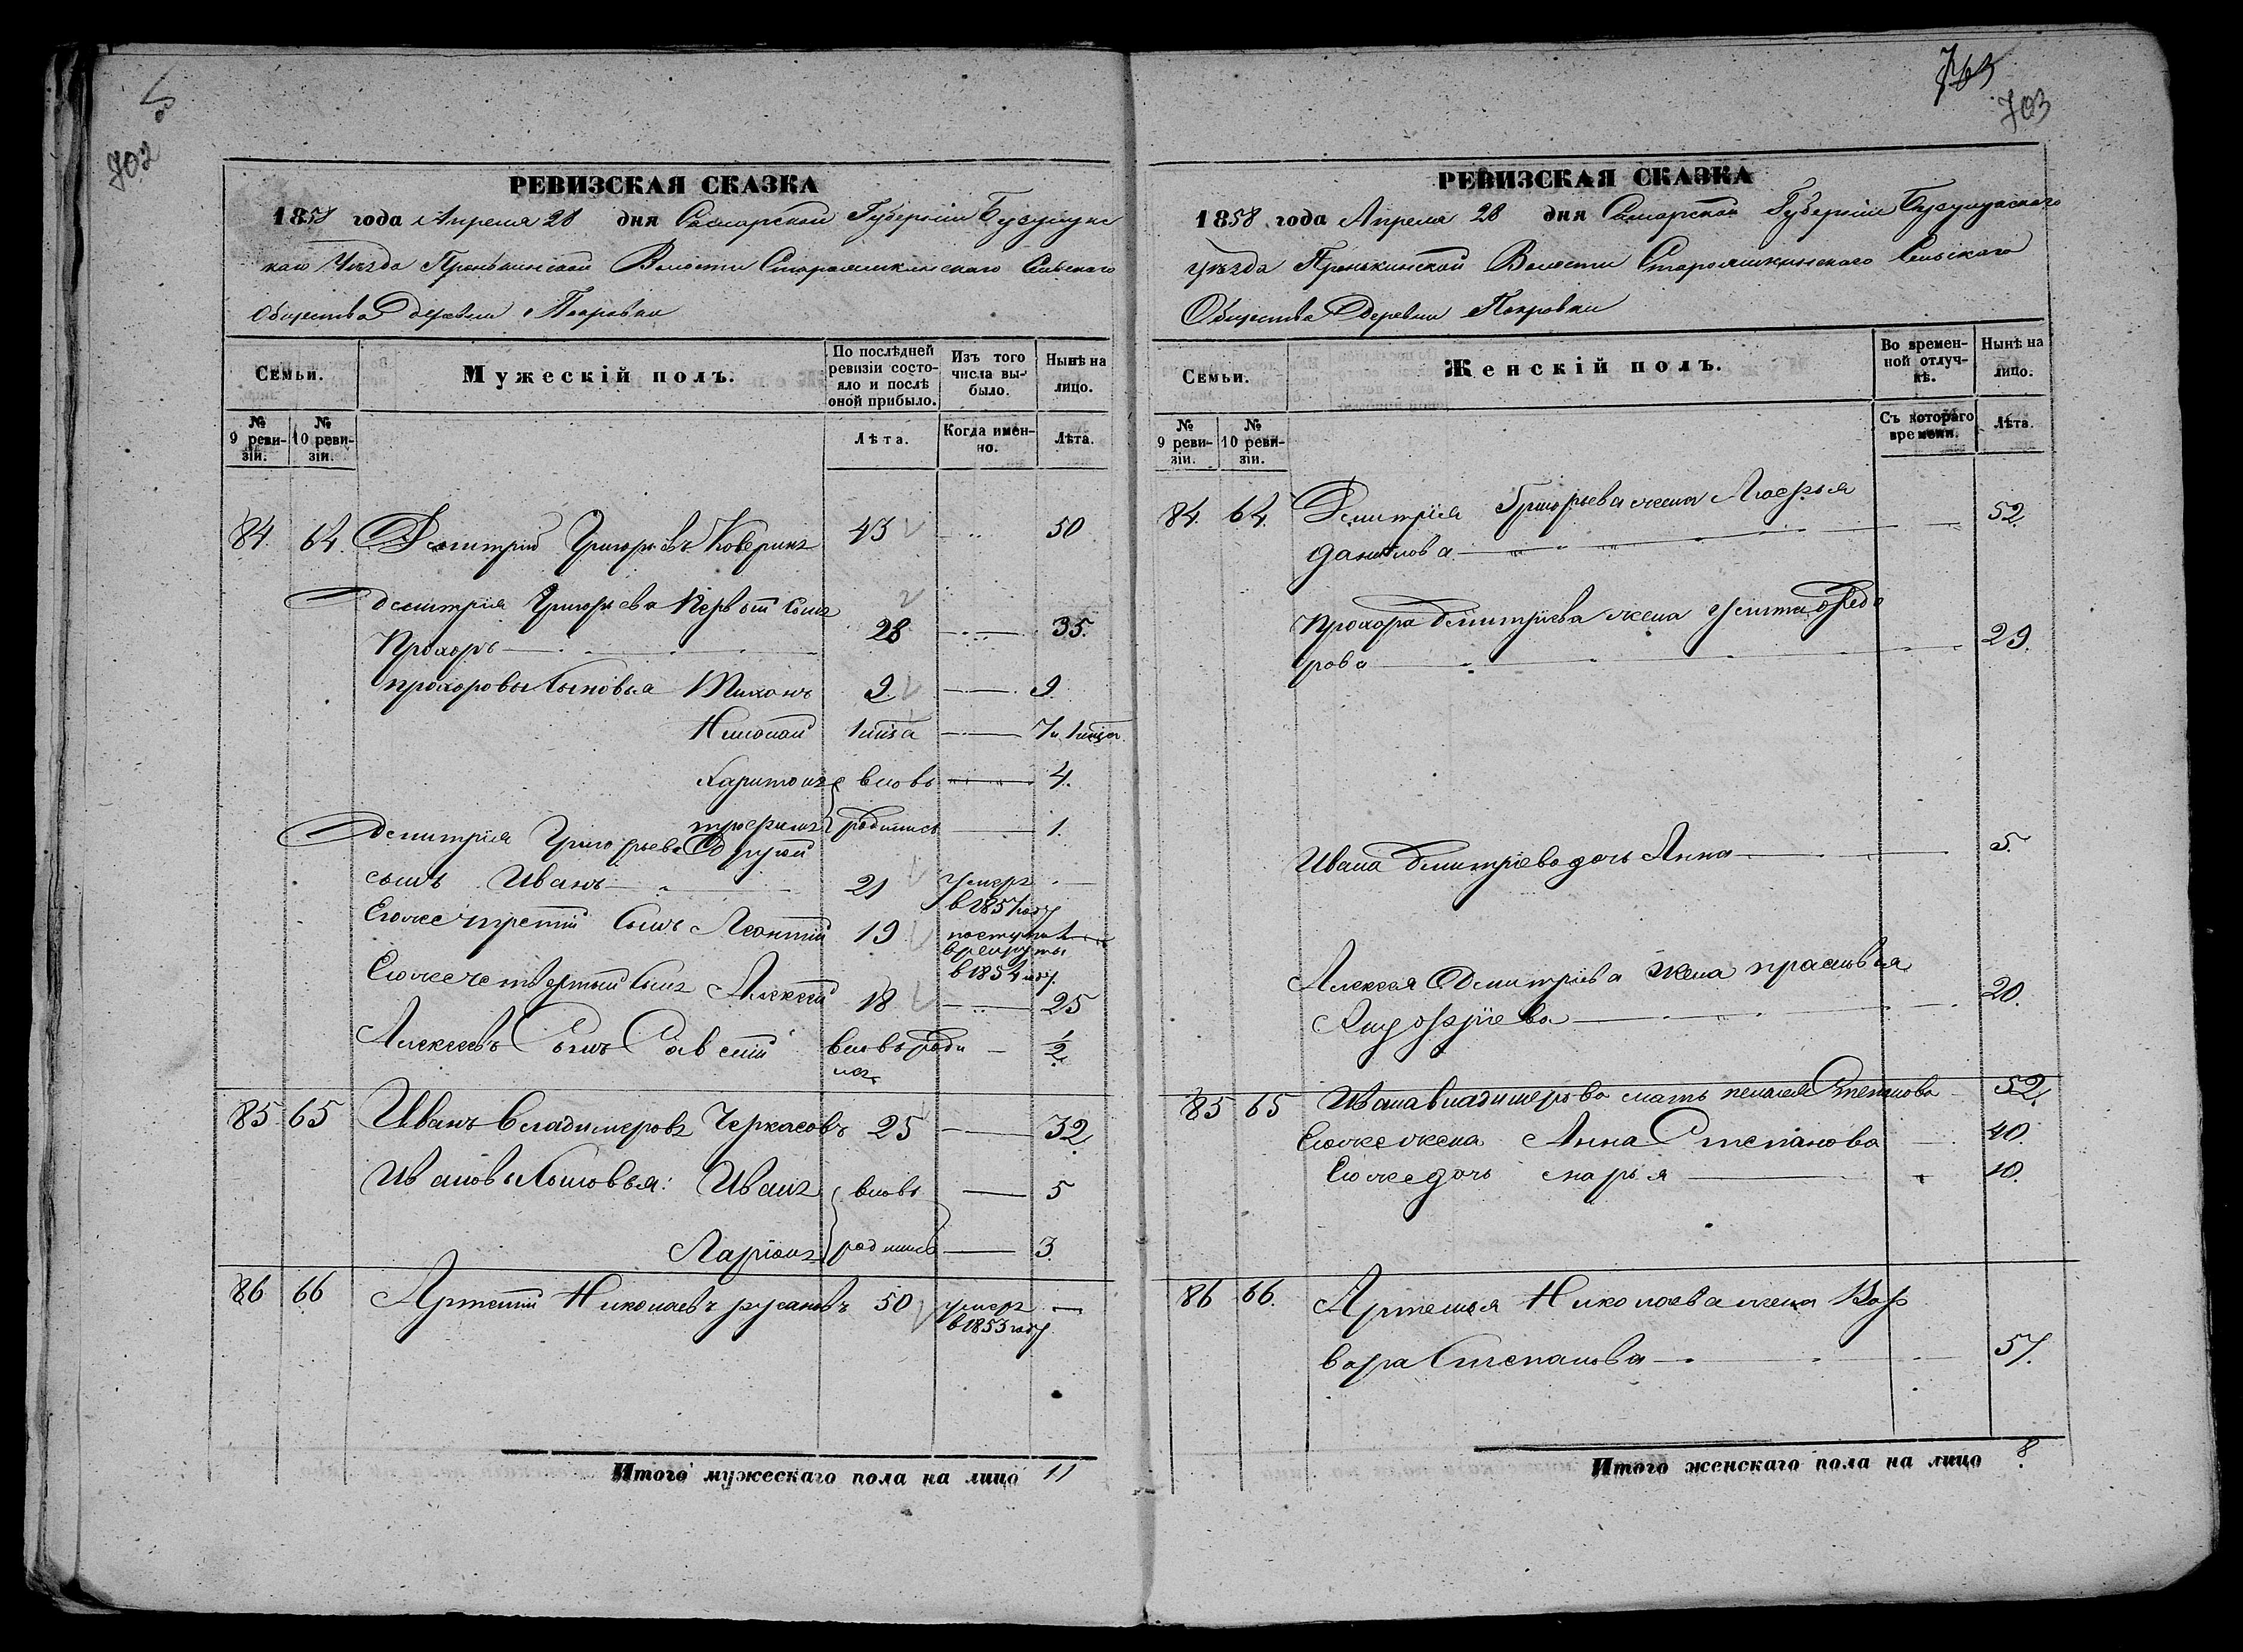 702
РЕВИЗСКАЯ СКАЗКА
1858 года Апреля 28 дня Самарской Губернiи Бузулукс
каго Уѣзда Пронькинской Волости Староашкинскаго Сельскаго
Общества деревни Покровки
Семьи.
Мужескiй полъ.
По послѣдней ревизiи состояло и послѣ оной прибыло.
Изъ того числа выбыло.
Нынѣ на лицо.
№ 9 ревизiи.
№ 10 ревизiи.
Лѣта.
Когда именно.
Лѣта.
84. 64. Дмитрiй Григорьевъ Коверинъ 43 50
Дмитрiя Григорьева Первый сынъ 
Прохоръ 28 35.
Прохоровы Сыновья Тихонъ 9. 9.
Николай 1 мѣца 7 и 1 мѣца
Харитонъ вновь 4.
трофимъ родились 1.
Дмитрiя Григорьева Другой
сынъ Иванъ 21 умеръ
в 1857 году
Егоже третiй Сынъ Леонтiй 19 поступил
в рекруты
в 1854 году.
Егоже четвертый Сынъ Алексей 18 25
Алексеевъ Сынъ Савелiй вновь роди ½
лся
85. 65 Иванъ Владимеровъ Черкасовъ 25 32
Ивановы Сыновья: Иванъ вновь 5
Ларiонъ родились 3
86 66 Артемiй Николаевъ русановъ 50 умеръ
в 1853 году
Итого мужескаго пола на лицо 11
703
РЕВИЗСКАЯ СКАЗКА
1858 года Апреля 28 дня Самарской Губернiи Бузулускаго
уѣзда Пронькинской Волости Староашкинскаго Сельскаго
Общества Деревни Покровки
Семьи.
Женскiй полъ.
Во временной отлучкѣ.
Нынѣ на лицо.
№ 9 ревизiи.
№ 10 ревизiи.
Съ котораго времени.
Лѣта.
84. 64. Дмитрiя Григорьева жена Марья
данилова 52.
Прохора дмитрiева жена Улита Федо
рова 29.
Ивана дмитрiева дочь Анна 5.
Алексея Дмитрiева жена прасковья
20.
85 65 Ивана владимерова мать пелагея Степанова 52.
Егоже жена Анна Степанова 40.
Егоже дочь марья 10.
86 66. Артемiя Николаева жена Вар
вара Степанова 57.
Итого женскаго пола на лицо 8.